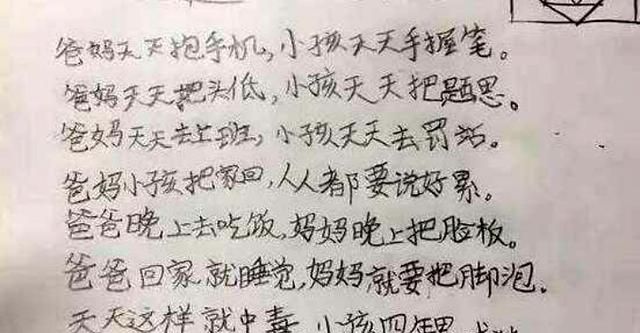 爸妈天天抱手机，小孩天天手握笔。
爸妈天天把头低，小孩天天把题思。
爸妈天天去上班，小孩天天去罚站。
爸妈小孩把家回，人人都要说好累。
爸爸晚上去吃饭，妈妈晚上把脸板。
爸爸回家就睡觉，妈妈就要把脚泡.
天天这样就中毒，小孩四年